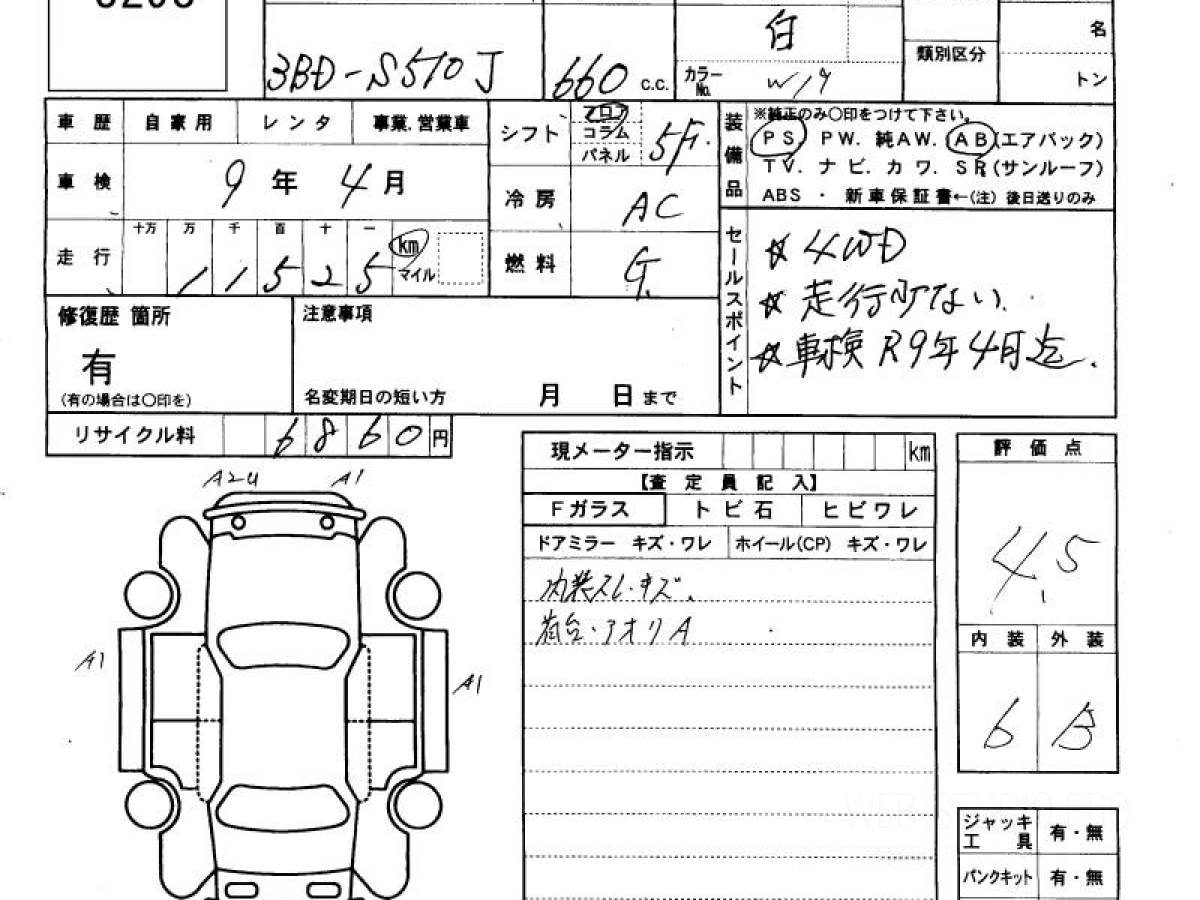 白
名
類別区分
3BD-S510J
660 c.c.
カラーNo. W19
トン
車歴 自家用 レンタ 事業.営業車
シフト フロア コラム パネル 5F.
装備品
※純正のみ〇印をつけて下さい。
PS PW. 純AW. AB(エアバック)
TV. ナビ. カワ. SR(サンルーフ)
ABS ・ 新車保証書←(注) 後日送りのみ
車検 9年 4月
冷房 AC
走行 十万 万 千 百 十 一
11525 km マイル
燃料 G.
セールスポイント
☆ 4WD
☆ 走行少ない.
☆ 車検 R9年4月迄.
修復歴 箇所
有
(有の場合は〇印を)
注意事項
名変期日の短い方 月 日まで
リサイクル料 6860円
現メーター指示 km
評価点
4.5
【査定員記入】
Fガラス トビ石 ヒビワレ
ドアミラー キズ・ワレ ホイール(CP) キズ・ワレ
内装スレ.キズ.
荷台.アオリA
内装 外装
6 B
A2U A1
A1 A1
ジャッキ工具 有・無
パンクキット 有・無